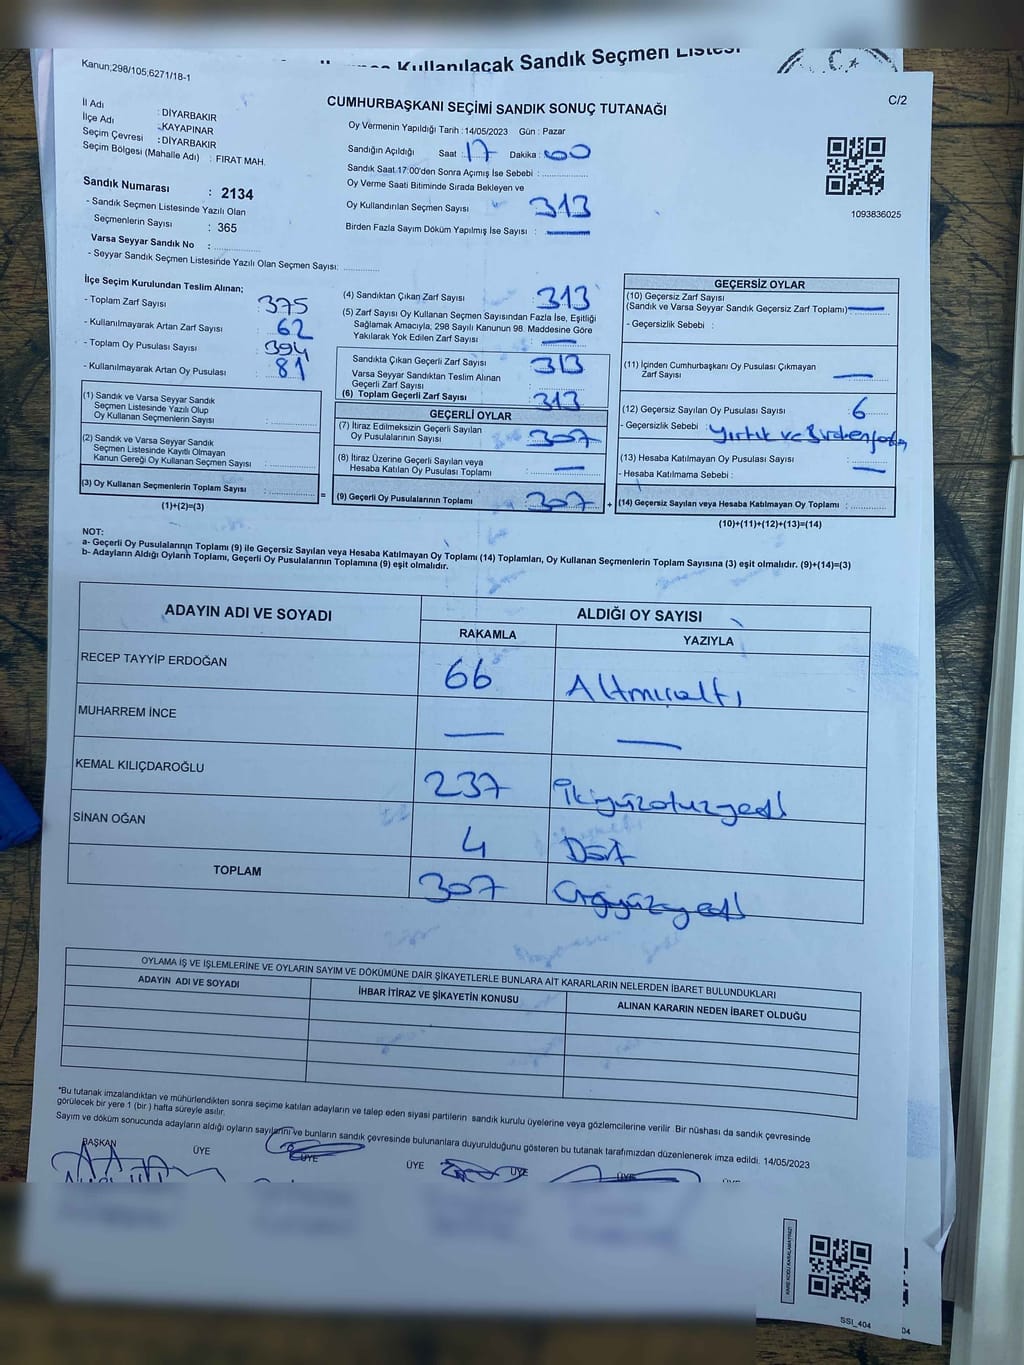 Kullanılacak Sandık Seçmen Listesi
Kanun;298/105,6271/18-1
C/2
CUMHURBAŞKANI SEÇİMİ SANDIK SONUÇ TUTANAĞI
İl Adı : DİYARBAKIR
İlçe Adı : KAYAPINAR
Seçim Çevresi : DİYARBAKIR
Seçim Bölgesi (Mahalle Adı) : FIRAT MAH.
Oy Vermenin Yapıldığı Tarih :14/05/2023 Gün : Pazar
Sandığın Açıldığı Saat : 17 Dakika : 00
Sandık Saat 17:00'den Sonra Açımış İse Sebebi :
Oy Verme Saati Bitiminde Sırada Bekleyen ve
Oy Kullandırılan Seçmen Sayısı : 313
Birden Fazla Sayım Döküm Yapılmış İse Sayısı : —
1093836025
Sandık Numarası : 2134
- Sandık Seçmen Listesinde Yazılı Olan
Seçmenlerin Sayısı : 365
Varsa Seyyar Sandık No :
- Seyyar Sandık Seçmen Listesinde Yazılı Olan Seçmen Sayısı:
İlçe Seçim Kurulundan Teslim Alınan;
- Toplam Zarf Sayısı : 375
- Kullanılmayarak Artan Zarf Sayısı : 62
- Toplam Oy Pusulası Sayısı : 394
- Kullanılmayarak Artan Oy Pusulası : 81
(1) Sandık ve Varsa Seyyar Sandık
Seçmen Listesinde Yazılı Olup
Oy Kullanan Seçmenlerin Sayısı :
(2) Sandık ve Varsa Seyyar Sandık
Seçmen Listesinde Kayıtlı Olmayan
Kanun Gereği Oy Kullanan Seçmen Sayısı :
(3) Oy Kullanan Seçmenlerin Toplam Sayısı :
(1)+(2)=(3)
=
(4) Sandıktan Çıkan Zarf Sayısı : 313
(5) Zarf Sayısı Oy Kullanan Seçmen Sayısından Fazla İse, Eşitliği
Sağlamak Amacıyla; 298 Sayılı Kanunun 98. Maddesine Göre
Yakılarak Yok Edilen Zarf Sayısı : —
Sandıkta Çıkan Geçerli Zarf Sayısı : 313
Varsa Seyyar Sandıktan Teslim Alınan
Geçerli Zarf Sayısı :
(6) Toplam Geçerli Zarf Sayısı : 313
GEÇERLİ OYLAR
(7) İtiraz Edilmeksizin Geçerli Sayılan
Oy Pusulalarının Sayısı : 307
(8) İtiraz Üzerine Geçerli Sayılan veya
Hesaba Katılan Oy Pusulası Toplamı : —
(9) Geçerli Oy Pusulalarının Toplamı : 307
+
GEÇERSİZ OYLAR
(10) Geçersiz Zarf Sayısı
(Sandık ve Varsa Seyyar Sandık Geçersiz Zarf Toplamı) —
- Geçersizlik Sebebi :
(11) İçinden Cumhurbaşkanı Oy Pusulası Çıkmayan
Zarf Sayısı : —
(12) Geçersiz Sayılan Oy Pusulası Sayısı : 6
- Geçersizlik Sebebi : Yırtık ve Birdenfazla
(13) Hesaba Katılmayan Oy Pusulası Sayısı : —
- Hesaba Katılmama Sebebi :
(14) Geçersiz Sayılan veya Hesaba Katılmayan Oy Toplamı :
(10)+(11)+(12)+(13)=(14)
NOT:
a- Geçerli Oy Pusulalarının Toplamı (9) ile Geçersiz Sayılan veya Hesaba Katılmayan Oy Toplamı (14) Toplamları, Oy Kullanan Seçmenlerin Toplam Sayısına (3) eşit olmalıdır. (9)+(14)=(3)
b- Adayların Aldığı Oyların Toplamı, Geçerli Oy Pusulalarının Toplamına (9) eşit olmalıdır.
ADAYIN ADI VE SOYADI ALDIĞI OY SAYISI
RAKAMLA YAZIYLA
RECEP TAYYİP ERDOĞAN 66 Altmışaltı
MUHARREM İNCE — —
KEMAL KILIÇDAROĞLU 237 İkiyüzotuzyedi
SİNAN OĞAN 4 Dört
TOPLAM 307 Üçyüzyedi
OYLAMA İŞ VE İŞLEMLERİNE VE OYLARIN SAYIM VE DÖKÜMÜNE DAİR ŞİKAYETLERLE BUNLARA AİT KARARLARIN NELERDEN İBARET BULUNDUKLARI
ADAYIN ADI VE SOYADI İHBAR İTİRAZ VE ŞİKAYETİN KONUSU ALINAN KARARIN NEDEN İBARET OLDUĞU
*Bu tutanak imzalandıktan ve mühürlendikten sonra seçime katılan adayların ve talep eden siyasi partilerin sandık kurulu üyelerine veya gözlemcilerine verilir Bir nüshası da sandık çevresinde
görülecek bir yere 1 (bir ) hafta süreyle asılır.
Sayım ve döküm sonucunda adayların aldığı oyların sayılarını ve bunların sandık çevresinde bulunanlara duyurulduğunu gösteren bu tutanak tarafımızdan düzenlenerek imza edildi. 14/05/2023
BAŞKAN ÜYE ÜYE ÜYE ÜYE ÜYE ÜYE
SSI_404
04